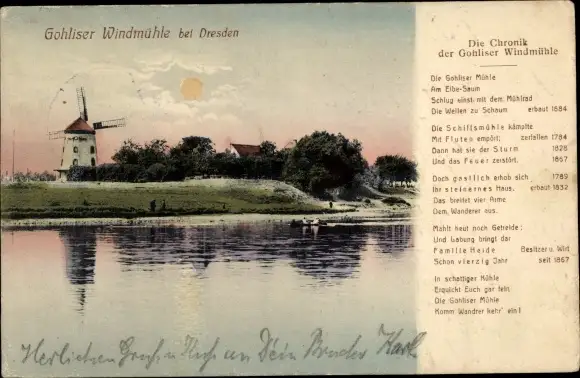 Gohliser Windmühle bei Dresden
Die Chronik
der Gohliser Windmühle
Die Gohliser Mühle
Am Elbe-Saum
Schlug einst mit dem Mühlrad
Die Wellen zu Schaum erbaut 1684
Die Schiffsmühle kämpfte
Mit Fluten empört; zerfallen 1784
Dann hat sie der Sturm 1828
Und das Feuer zerstört. 1867
Doch gastlich erhob sich 1789
Ihr steinernes Haus, erbaut 1832
Das breitet vier Arme
Dem Wanderer aus.
Mahlt heut noch Getreide;
Und Labung bringt dar
Familie Heide Besitzer u. Wirt
Schon vierzig Jahr seit 1867
In schattiger Kühle
Erquickt Euch gar fein
Die Gohliser Mühle
Komm Wandrer kehr' ein!
Herzlichen Gruß u an Dein Bruder Karl